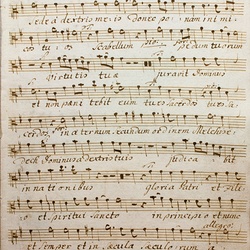 sede a dextris me is Donec po nam ini mi
cos tu os scabellum pedum tuorum
Virtutis tuæ juravit Dominus
et non pæni tebit eum tu es Sacerdos tu es Sa
cerdos in æternum secundum ordinem Melchise
dech Dominus a dextris tuis judica bit
in nationibus Gloria Patri et Fili
o et Spiritui Sancto in principio et nunc
allegro
et semper et in sæcula sæculorum